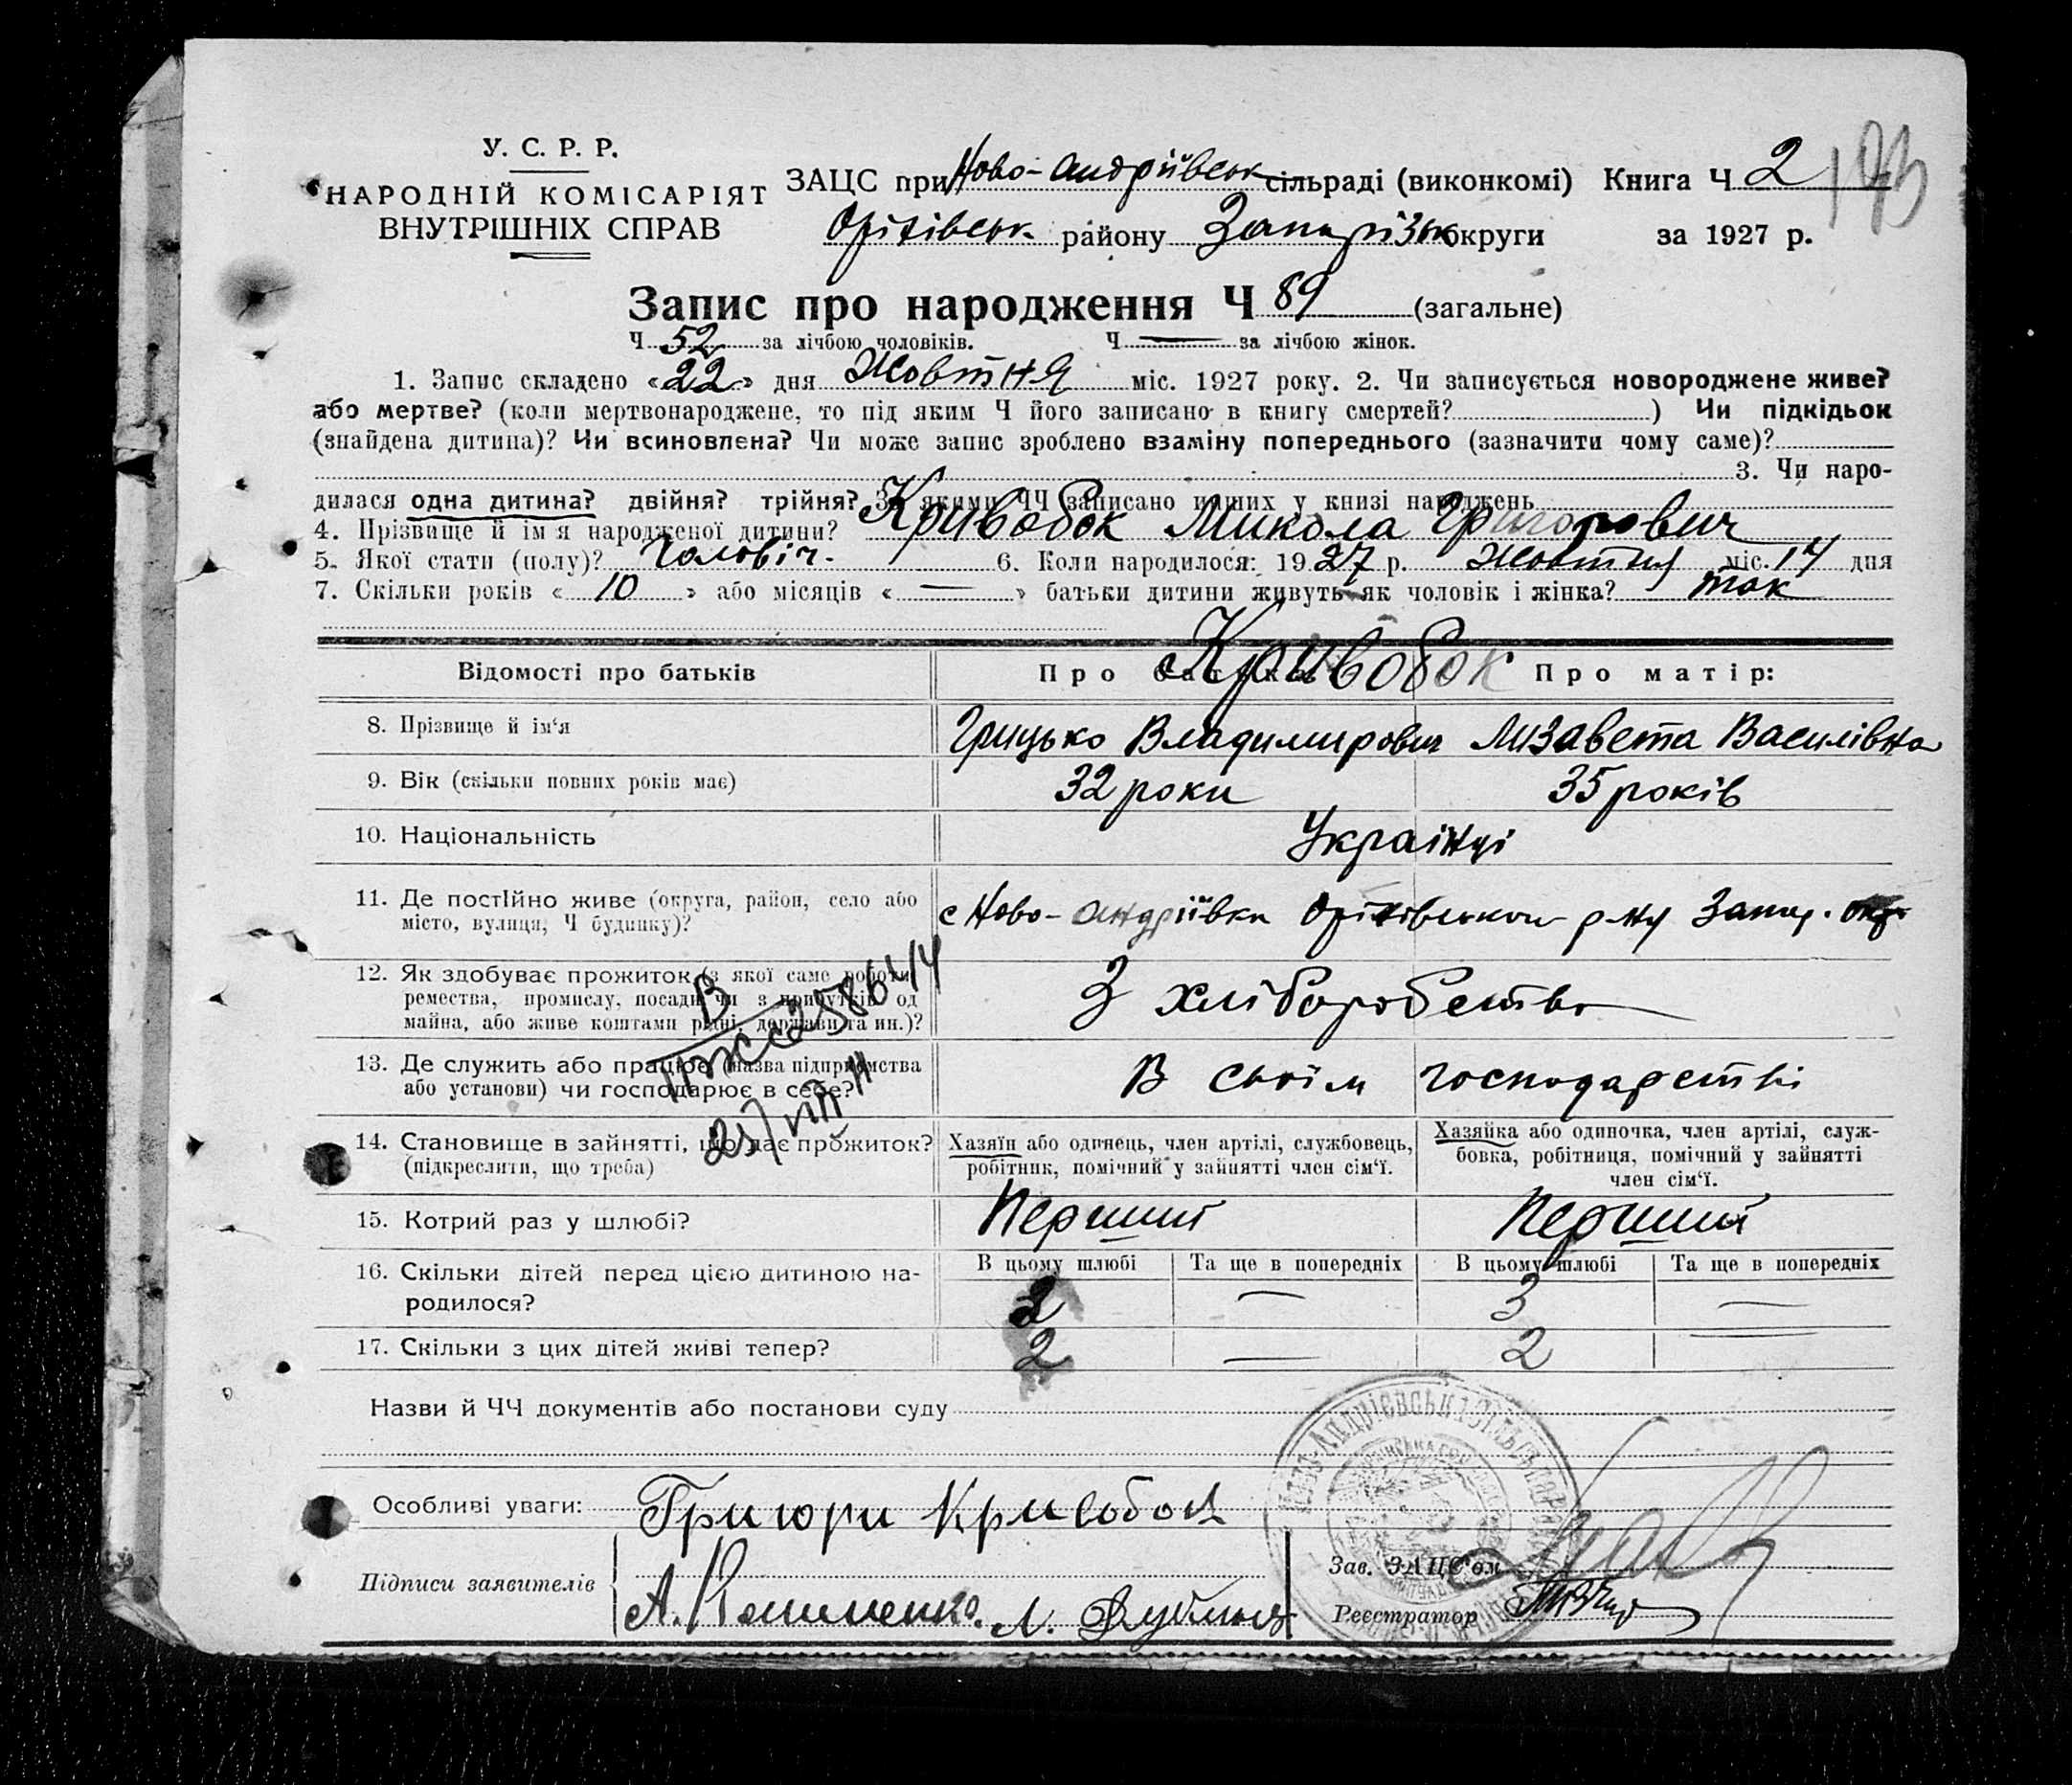 У. С. Р. Р.
НАРОДНІЙ КОМІСАРІЯТ
ВНУТРІШНІХ СПРАВ
ЗАЦС при Ново-Андріївськ сільраді (виконкомі) Книга Ч 2
193
Оріхівськ. району Запорізьк округи за 1927 р.
Запис про народження Ч 89 (загальне)
Ч 52 за лічбою чоловіків. Ч — за лічбою жінок.
1. Запис складено «22» дня Жовтня міс. 1927 року. 2. Чи записується новороджене живе?
або мертве? (коли мертвонароджене, то під яким Ч його записано в книгу смертей? ) Чи підкідьок
(знайдена дитина)? Чи всиновлена? Чи може запис зроблено взаміну попереднього (зазначити чому саме)?
3. Чи наро-
дилася одна дитина? двійня? трійня? За якими ЧЧ записано инших у книзі народжень
4. Прізвище й ім'я народженої дитини? Кривобок Микола Григорович
5. Якої стати (полу)? Чоловіч. 6. Коли народилося: 1927 р. Жовтня міс. 14 дня
7. Скільки років «10» або місяців «—» батьки дитини живуть як чоловік і жінка? так
Відомості про батьків Про батька: Про матір:
Кривобок
8. Прізвище й ім'я Грицько Владимирович Лизавета Василівна
9. Вік (скільки повних років має) 32 роки 35 років
10. Національність Українці
11. Де постійно живе (округа, район, село або
місто, вулиця, Ч будинку)? с Ново-Андріївки Оріхівського р-ну Запор. окр.
12. Як здобуває прожиток (з якої саме роботи,
ремества, промислу, посади чи з прибутків од
майна, або живе коштами рідні, держави та ин.)? З хліборобства
13. Де служить або працює (назва підприємства
або установи) чи господарює в себе? В своїм господарстві
14. Становище в зайнятті, що дає прожиток?
(підкреслити, що треба)
Хазяїн або одинець, член артілі, службовець,
робітник, помічний у зайнятті член сім'ї.
Хазяйка або одиночка, член артілі, служ-
бовка, робітниця, помічний у зайнятті
член сім'ї.
15. Котрий раз у шлюбі? Перший Перший
16. Скільки дітей перед цією дитиною на-
родилося?
В цьому шлюбі Та ще в попередніх В цьому шлюбі Та ще в попередніх
— 3 —
17. Скільки з цих дітей живі тепер? 2 — 2 —
Назви й ЧЧ документів або постанови суду
Особливі уваги: Григори Кривобок
Підписи заявителів
А.
Л.
Зав. ЗАЦС'ом
Реєстратор